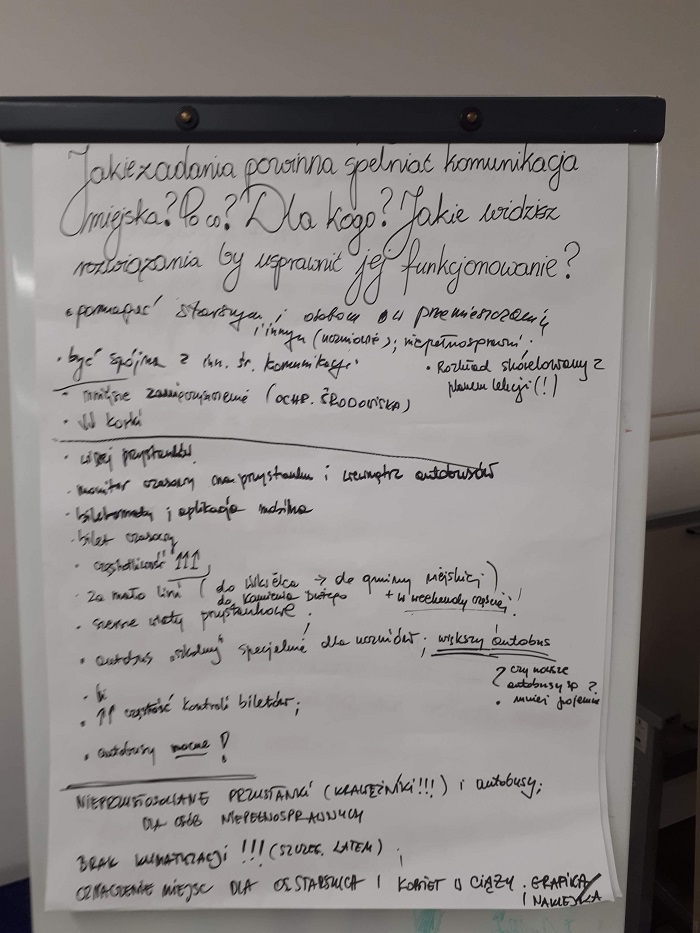 Jakie zadania powinna spełniać komunikacja
miejska? Po co? Dla kogo? Jakie widzisz
rozwiązania by usprawnić jej funkcjonowanie?
• pomagać starszym i osobom w przemieszczaniu
i innym (uczniowie); niepełnosprawni.
• być spójna z inn. śr. komunikacji
• Rozkład skorelowany z
planem lekcji (!)
• mniejsze zanieczyszczenie (OCHR. ŚRODOWISKA)
• ↓↓ korki
• więcej przystanków
• monitor czasowy na przystanku i wewnątrz autobusów
• biletomaty i aplikacja mobilna
• bilet czasowy
• częstotliwość ↑↑↑
• za mało linii (do → do gminy miejskiej)
do Kamienia Dużego + w weekendy częściej!
• ciemne wiaty przystankowe!
• autobus "szkolny" specjalnie dla uczniów; większy autobus
? czy nasze
autobusy są ?
• mniej pojemne
• ↑↑ częstość kontroli biletów;
• autobusy nocne!
NIEPRZYSTOSOWANE PRZYSTANKI (KRAWĘŻNIKI!!!) i autobusy;
DLA OSÓB NIEPEŁNOSPRAWNYCH
BRAK KLIMATYZACJI !!! (SZCZEG. LATEM);
OZNACZENIE MIEJSC DLA OS STARSZYCH I KOBIET W CIĄŻY. GRAFIKA/
i NAKLEJKA